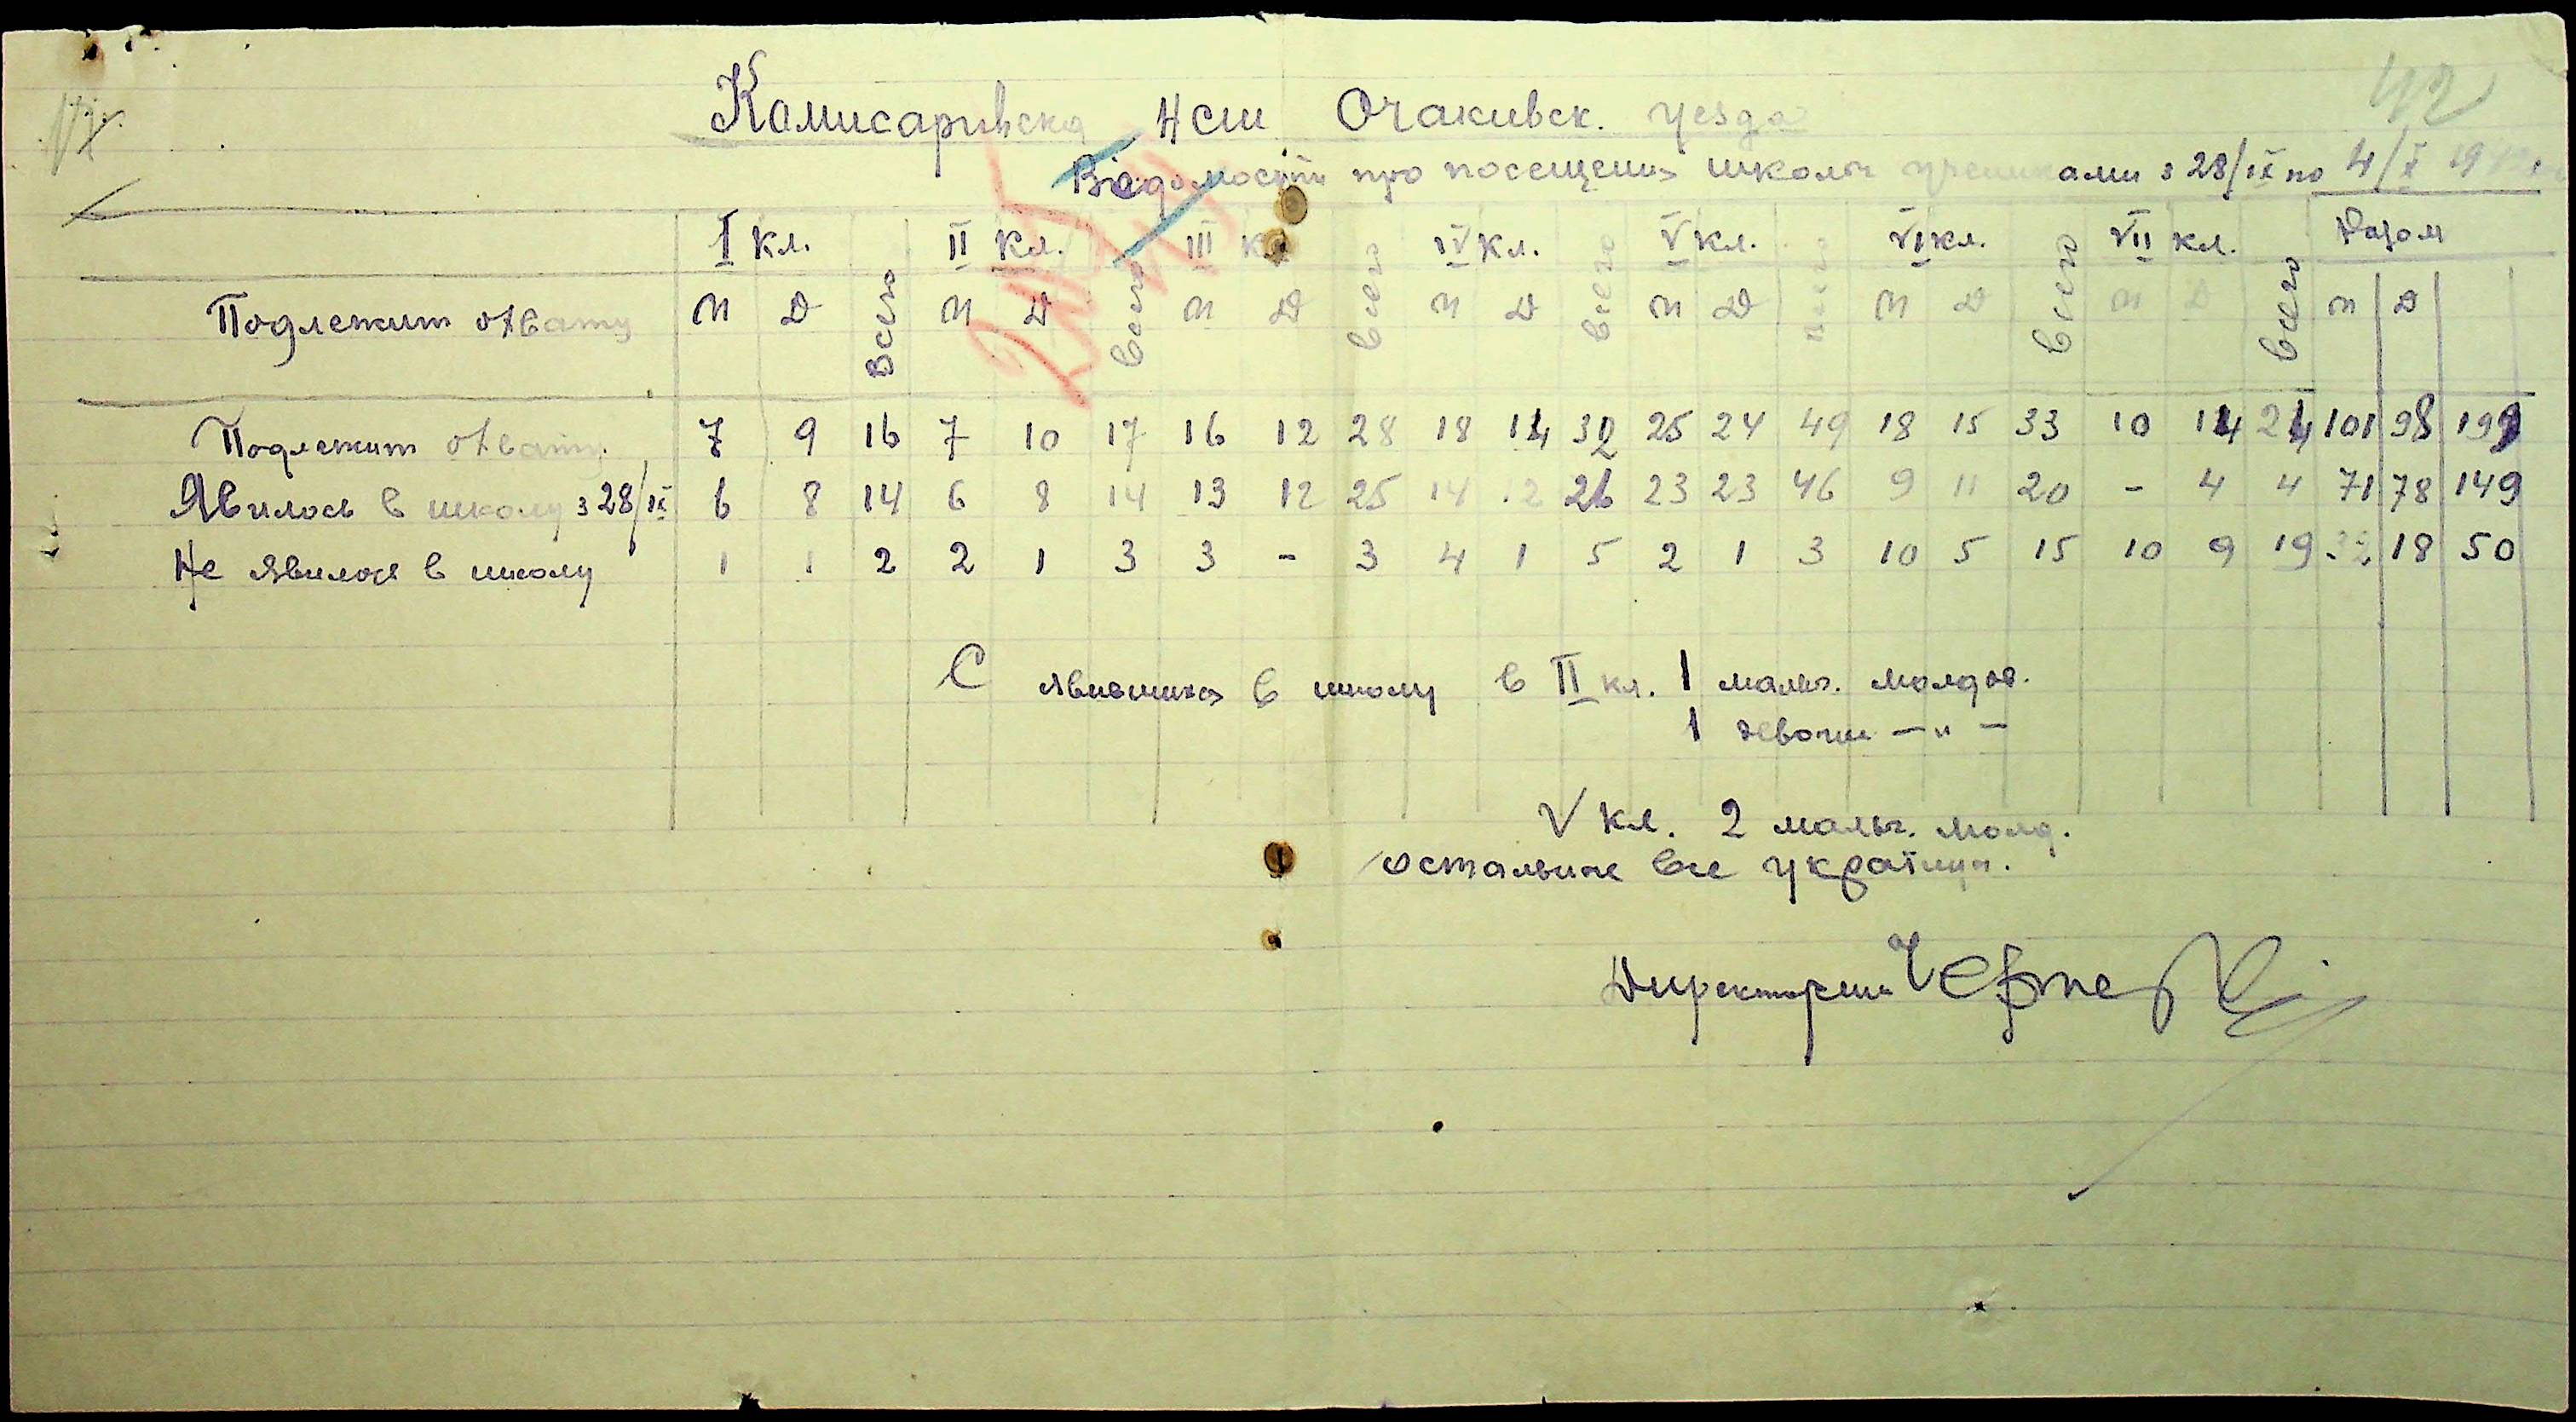 42
Комисаривска НСШ Очакивск. уезда
Відомости про посещения школы учениками з 28/IX по 4/X 19
I кл. всего II кл. всего III кл. всего IV кл. всего V кл. всего VI кл. всего VII кл. всего Разом
Подлежит охвату М Д М Д М Д М Д М Д М Д М Д М Д
Подлежит охвату 7 9 16 7 10 17 16 12 28 18 14 32 25 24 49 18 15 33 10 14 24 101 98 199
Явилось в школу з 28/IX 6 8 14 6 8 14 13 12 25 14 12 26 23 23 46 9 11 20 - 4 4 71 78 149
Не явилося в школу 1 1 2 2 1 3 3 - 3 4 1 5 2 1 3 10 5 15 10 9 19 32 18 50
С явившихся в школу в II кл. 1 мальч. молдов.
1 девочка —"—
V кл. 2 мальч. молд.
остальные все україцы.
Директорша